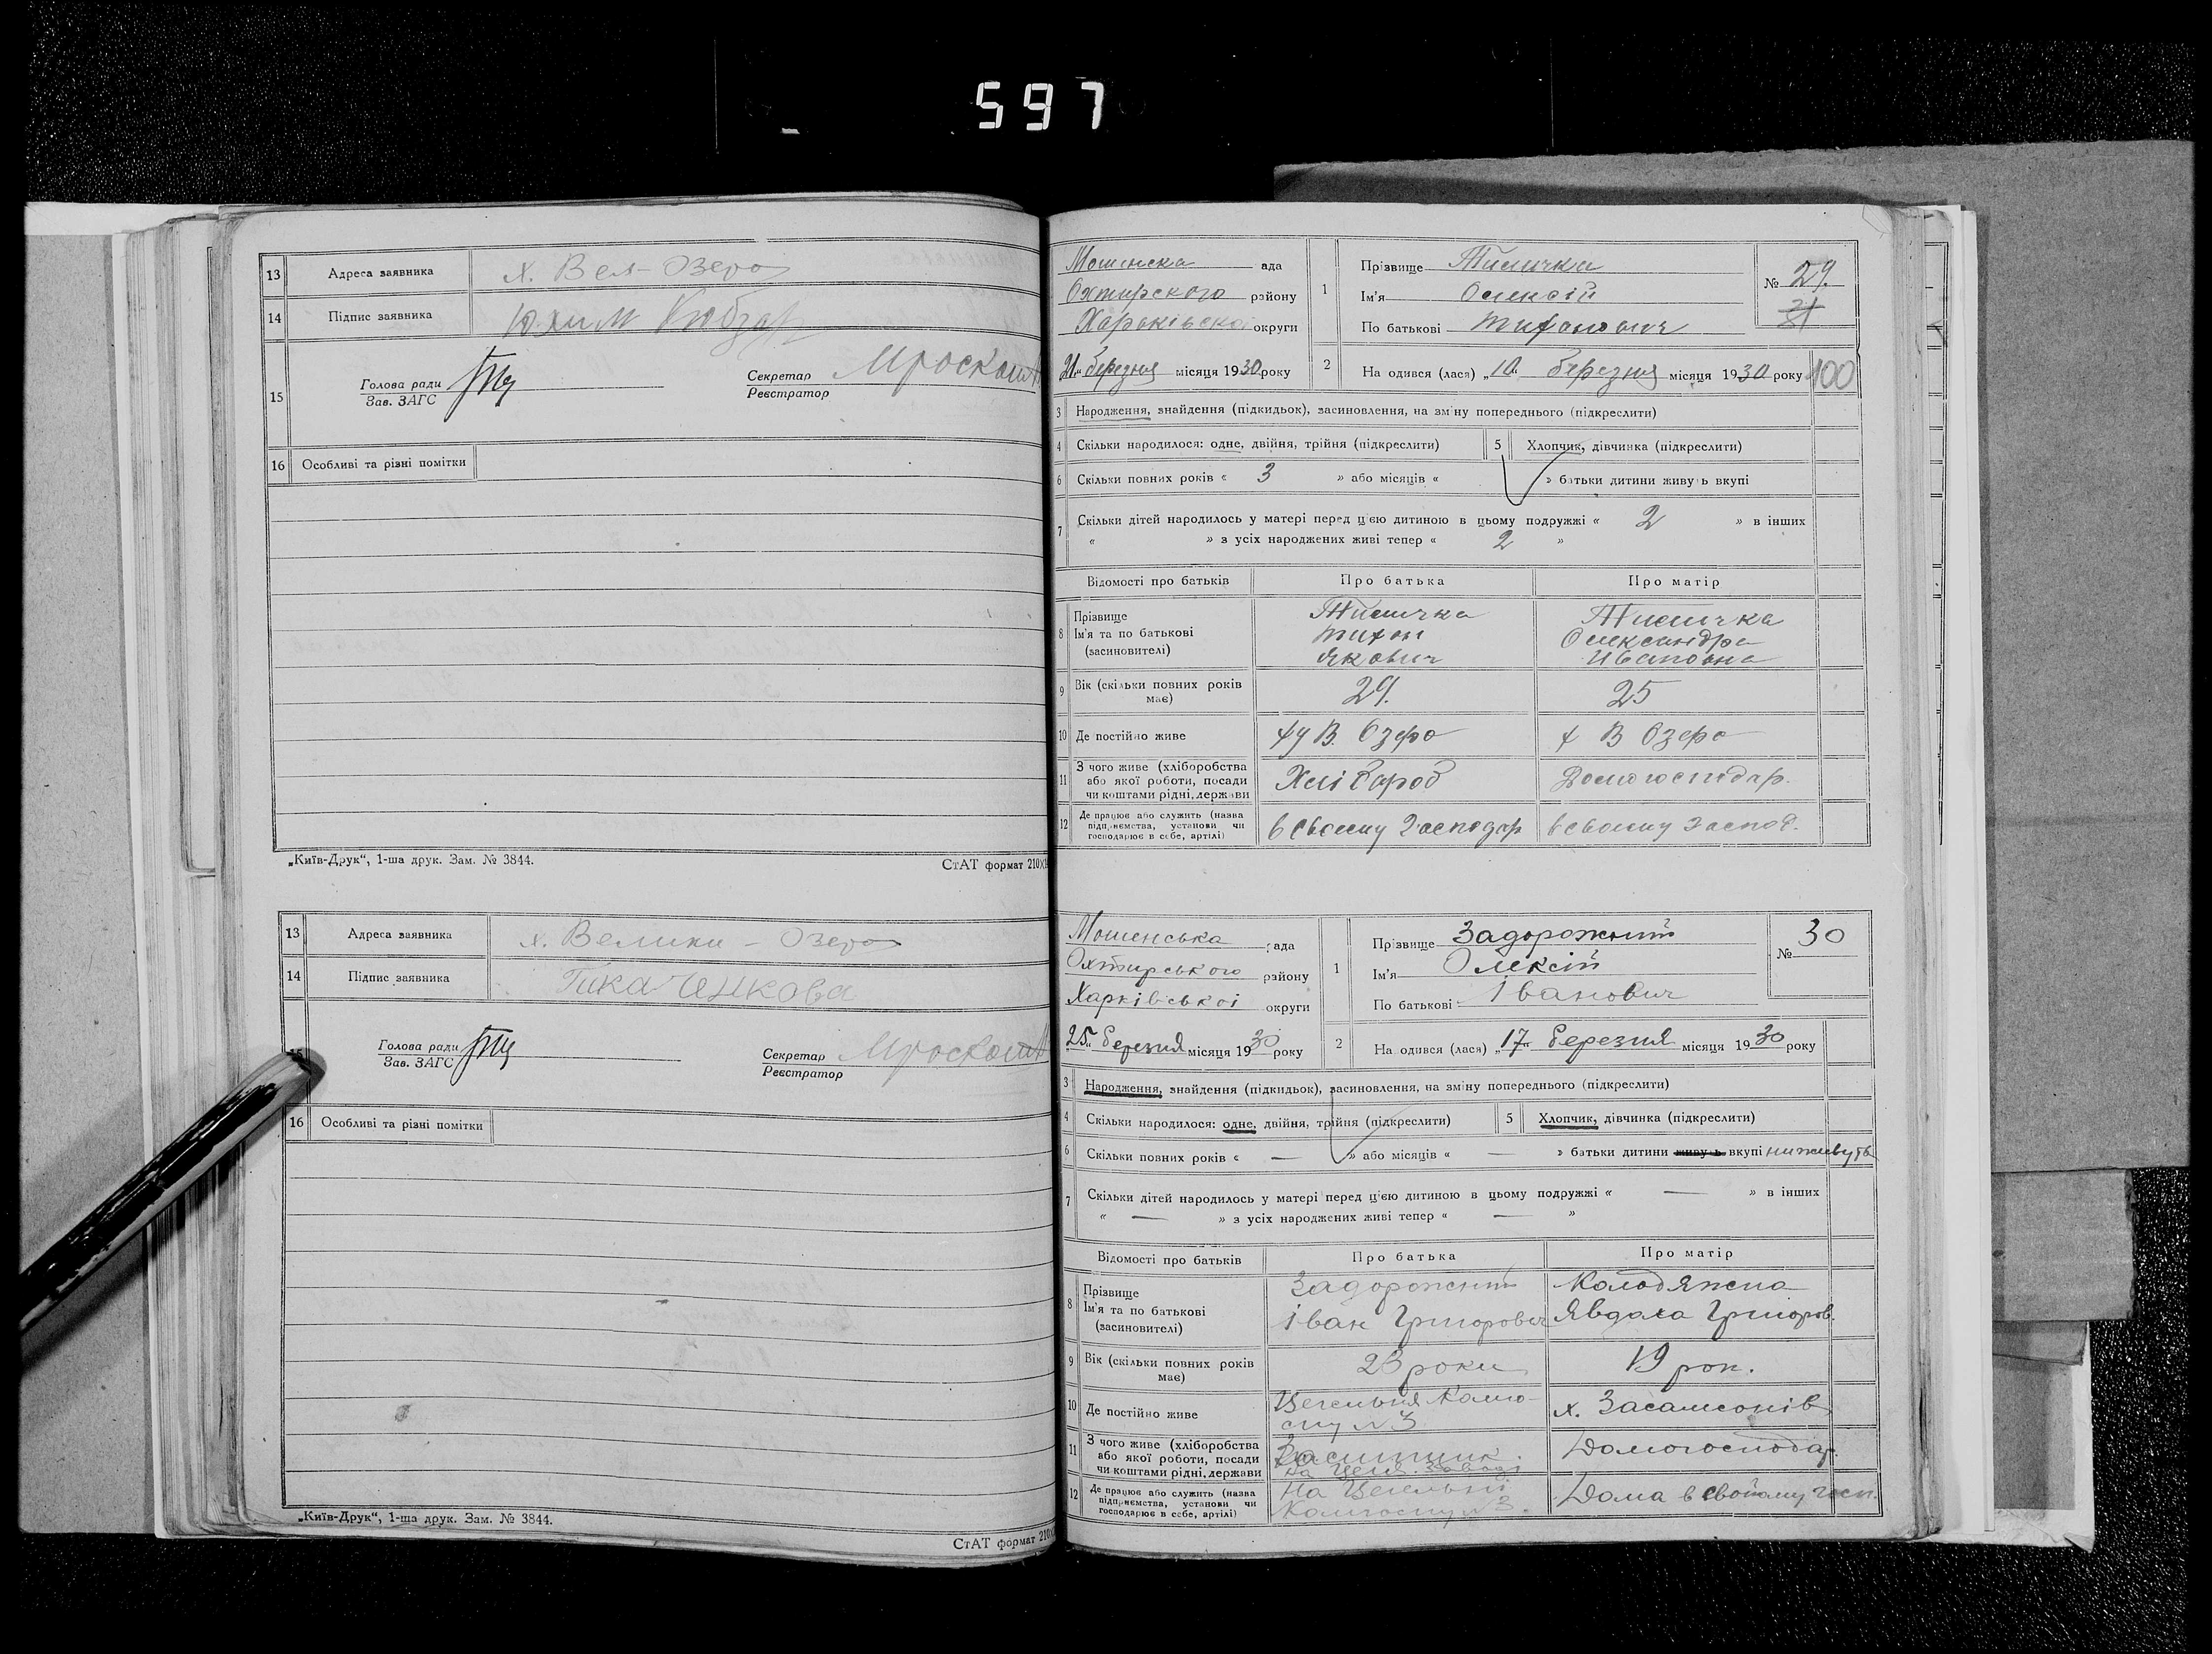 597
13 Адреса заявника х. Вел-Озеро
14 Підпис заявника Юхим Кобзар
15 Голова ради
Зав. ЗАГС
Секретар
Реєстратор
16 Особливі та різні помітки
„Київ-Друк“, 1-ша друк. Зам. № 3844.
СтАТ формат 210
13 Адреса заявника х. Велики - Озеро
14 Підпис заявника
15 Голова ради
Зав. ЗАГС
Секретар
Реєстратор
16 Особливі та різні помітки
„Київ-Друк“, 1-ша друк. Зам. № 3844.
СтАТ формат 210
Мошенска ада
Охтирского району
Харківської округи
21 березня місяця 1930 року
1 Прізвище
Ім'я Олексій
По батькові Тихонович
№ 29.
31
2 На одився (лася) „10 березня місяця 1930 року
100
3 Народження, знайдення (підкидьок), засиновлення, на зміну попереднього (підкреслити)
4 Скільки народилося: одне, двійня, трійня (підкреслити) 5 Хлопчик, дівчинка (підкреслити)
6 Скільки повних років « 3 » або місяців « » батьки дитини живу ь вкупі
7 Скільки дітей народилось у матері перед цією дитиною в цьому подружжі « 2 » в інших
« » з усіх народжених живі тепер « 2 »
Відомості про батьків Про батька Про матір
8 Прізвище
Ім'я та по батькові
(засиновителі)
Тихон
Якович
Олександра
Ивановна
9 Вік (скільки повних років має) 29. 25
10 Де постійно живе ху В. Озеро х В Озеро
11 З чого живе (хліборобства або якої роботи, посади чи коштами рідні, держави Хлібороб Домогосподар.
12 Де працює або служить (назва підприємства, установи чи господарює в себе, артілі) в своєму Господар в своєму Господ.
Мошенська рада
Охтирського району
Харківської округи
25 березня місяця 1930 року
1 Прізвище Задорожний
Ім'я Олексій
По батькові Іванович
№ 30
2 На одився (лася) „17“ березня місяця 1930 року
3 Народження, знайдення (підкидьок), засиновлення, на зміну попереднього (підкреслити)
4 Скільки народилося: одне, двійня, трійня (підкреслити) 5 Хлопчик, дівчинка (підкреслити)
6 Скільки повних років « — » або місяців « — » батьки дитини живу ь вкупі ни живуть
7 Скільки дітей народилось у матері перед цією дитиною в цьому подружжі « — » в інших
« — » з усіх народжених живі тепер « — »
Відомості про батьків Про батька Про матір
8 Прізвище
Ім'я та по батькові
(засиновителі)
Задорожний
Іван Григорович
Колодяжна
Явдоха Григоров.
9 Вік (скільки повних років має) 23 роки 19 рок.
10 Де постійно живе Цегельня № 3 х. Засамсонів
11 З чого живе (хліборобства або якої роботи, посади чи коштами рідні, держави на Цегел. заводі Домогосподар.
12 Де працює або служить (назва підприємства, установи чи господарює в себе, артілі) На Цегельні № 3. Дома в свойому госп.